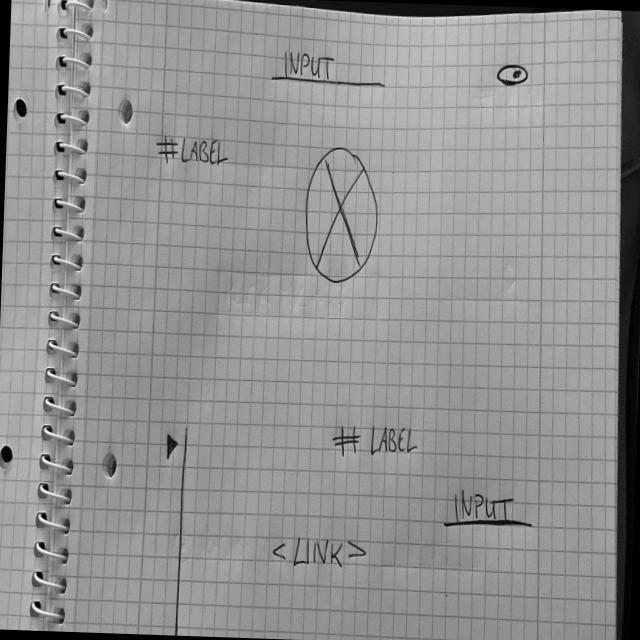 INPUT
#LABEL
# LABEL
INPUT
<LINK>